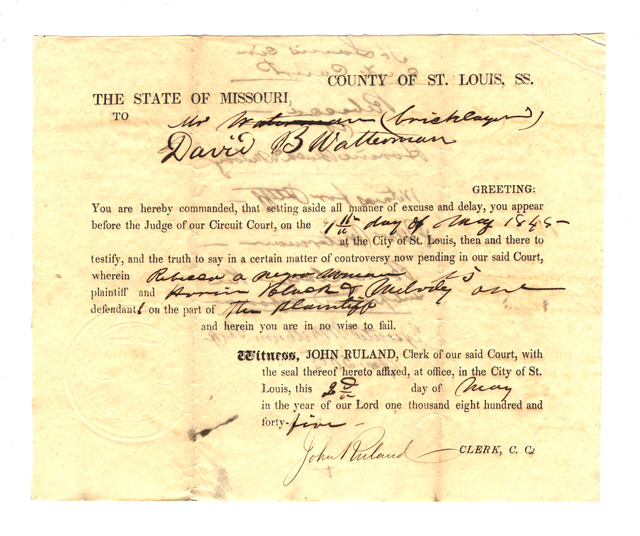 COUNTY OF ST. LOUIS, SS.
THE STATE OF MISSOURI,
TO Mr Waterman (bricklayer)
David B Watterman
GREETING:
You are hereby commanded, that setting aside all manner of excuse and delay, you appear
before the Judge of our Circuit Court, on the day of May 1845
at the City of St. Louis, then and there to
testify, and the truth to say in a certain matter of controversy now pending in our said Court,
wherein Rebecca a negro woman is
plaintiff and Black & Melody are
defendant on the part of the Plaintiff
and herein you are in no wise to fail.
Witness, JOHN RULAND, Clerk of our said Court, with
the seal thereof hereto affixed, at office, in the City of St.
Louis, this day of May
in the year of our Lord one thousand eight hundred and
forty-five
John Ruland CLERK, C. C.